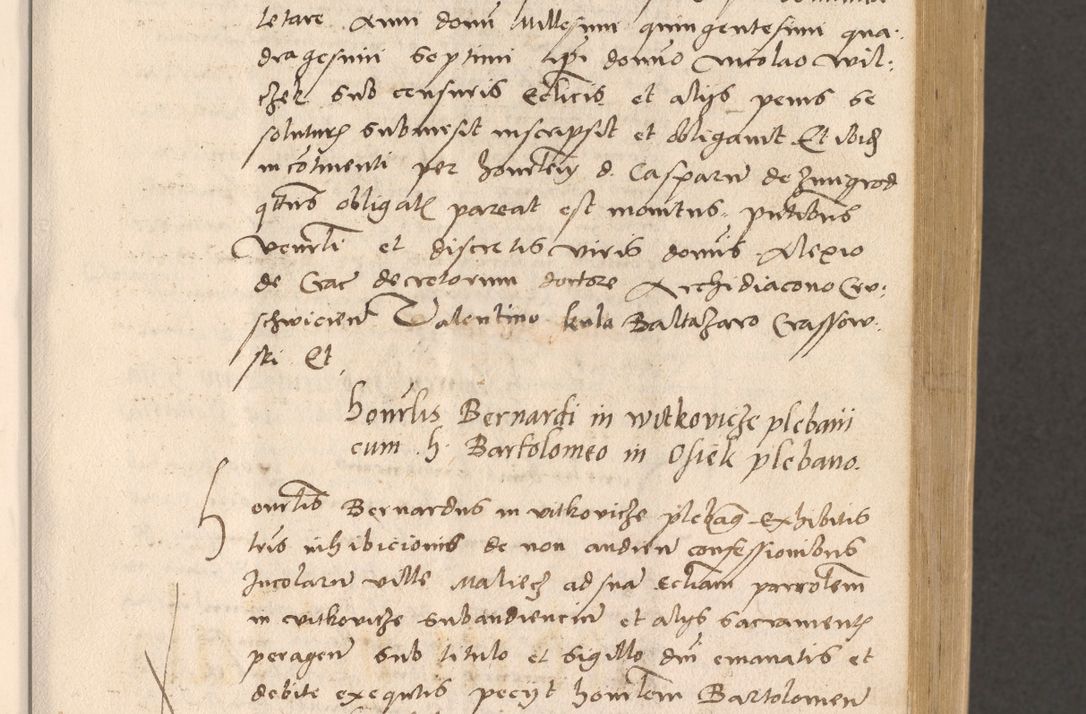 letare Anni domi Millesimi quingentesimi qua-
dragesimi septimi ipi domino Nicolao Wil-
czek sub censuris Ecclicis et alijs penis se
soluturu submisit inscripsit et obligavit Et ibide
in cotinenti per honrlem d. Casparu de Zmigrod
qtus obligatis pareat est monitus. pntibus
Venrli et discretis viris domis Alexio
de Crac decretorum doctore Archidiacono Cru-
schwicien Valentino kula Baltazaro Crassow-
ski Et
honrlis Bernardi in witkovicze plebani
cum h. Bartolomeo in Osiek plebano.
Honrlis Bernardus in vitkovicze plebanus Exhibitis
lris inhibicionis de non audien confessionibus
Incolaru ville Maliecz ad sua Eccliam parrolem
in vitkovicze subaudiencin et alijs sacramentis
peragen sub titulo et sigillo dni emanatis et
debite exequtis pecijt honrlem Bartolomeu